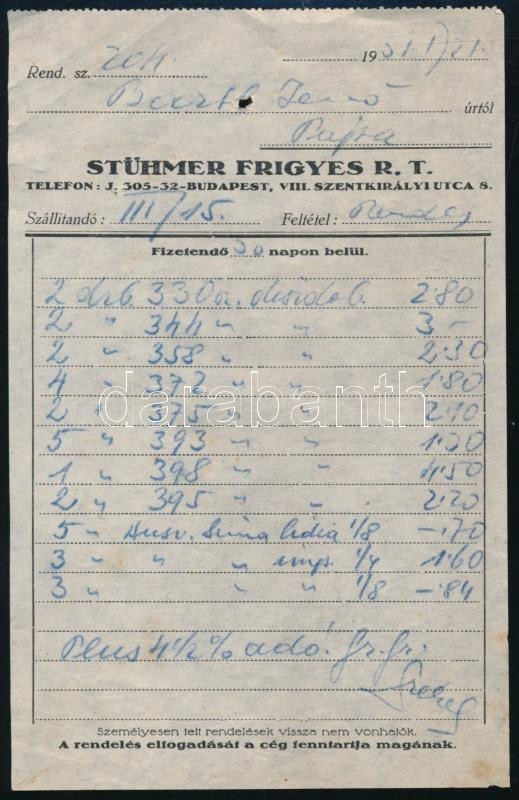 1931. I/21.
Rend. sz.
Bartl Jenő úrtól
STÜHMER FRIGYES R. T.
TELEFON: J. 305-32-BUDAPEST, VIII. SZENTKIRÁLYI UTCA 8.
Szállitandó: III/15. Feltétel:
Fizetendő 30 napon belül.
2 drb. 330 2·80
2 " 344 " " 3-
2 " 358 " " 2·30
4 " 372 " " 1·80
2 " 375 " "
5 " 393 " "
1 " 398 " " 4·50
2 " 395 " " 2·20
5 " Husv. 1/8 -·70
3 " " 1/4 1·60
3 " " " 1/8 -·84
Plus 4 1/2 % adó.
darabanth
Személyesen tett rendelések vissza nem vonhatók.
A rendelés elfogadását a cég fenntartja magának.